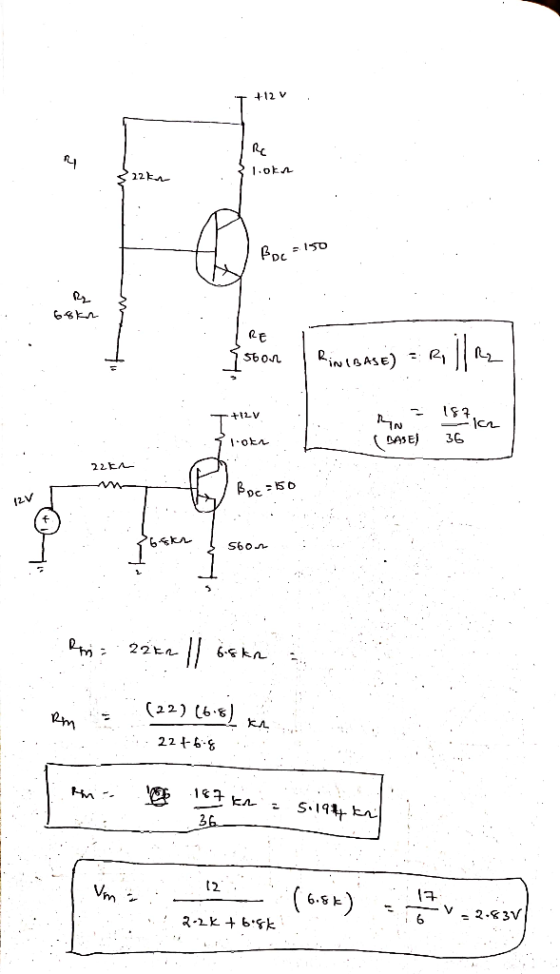 +12 V
R1
22kΩ
RC
1.0kΩ
βDC = 150
R2
6.8kΩ
RE
560Ω
RIN(BASE) = R1 || R2
RIN (BASE) = 187/36 kΩ
+12V
1.0kΩ
22kΩ
βDC = 150
12V
+
-
6.8kΩ
560Ω
Rth = 22kΩ || 6.8kΩ =
Rth = (22)(6.8) / 22+6.8 kΩ
Rth = 187/36 kΩ = 5.194 kΩ
Vth = 12 / 2.2k + 6.8k (6.8k) = 17/6 V = 2.83V